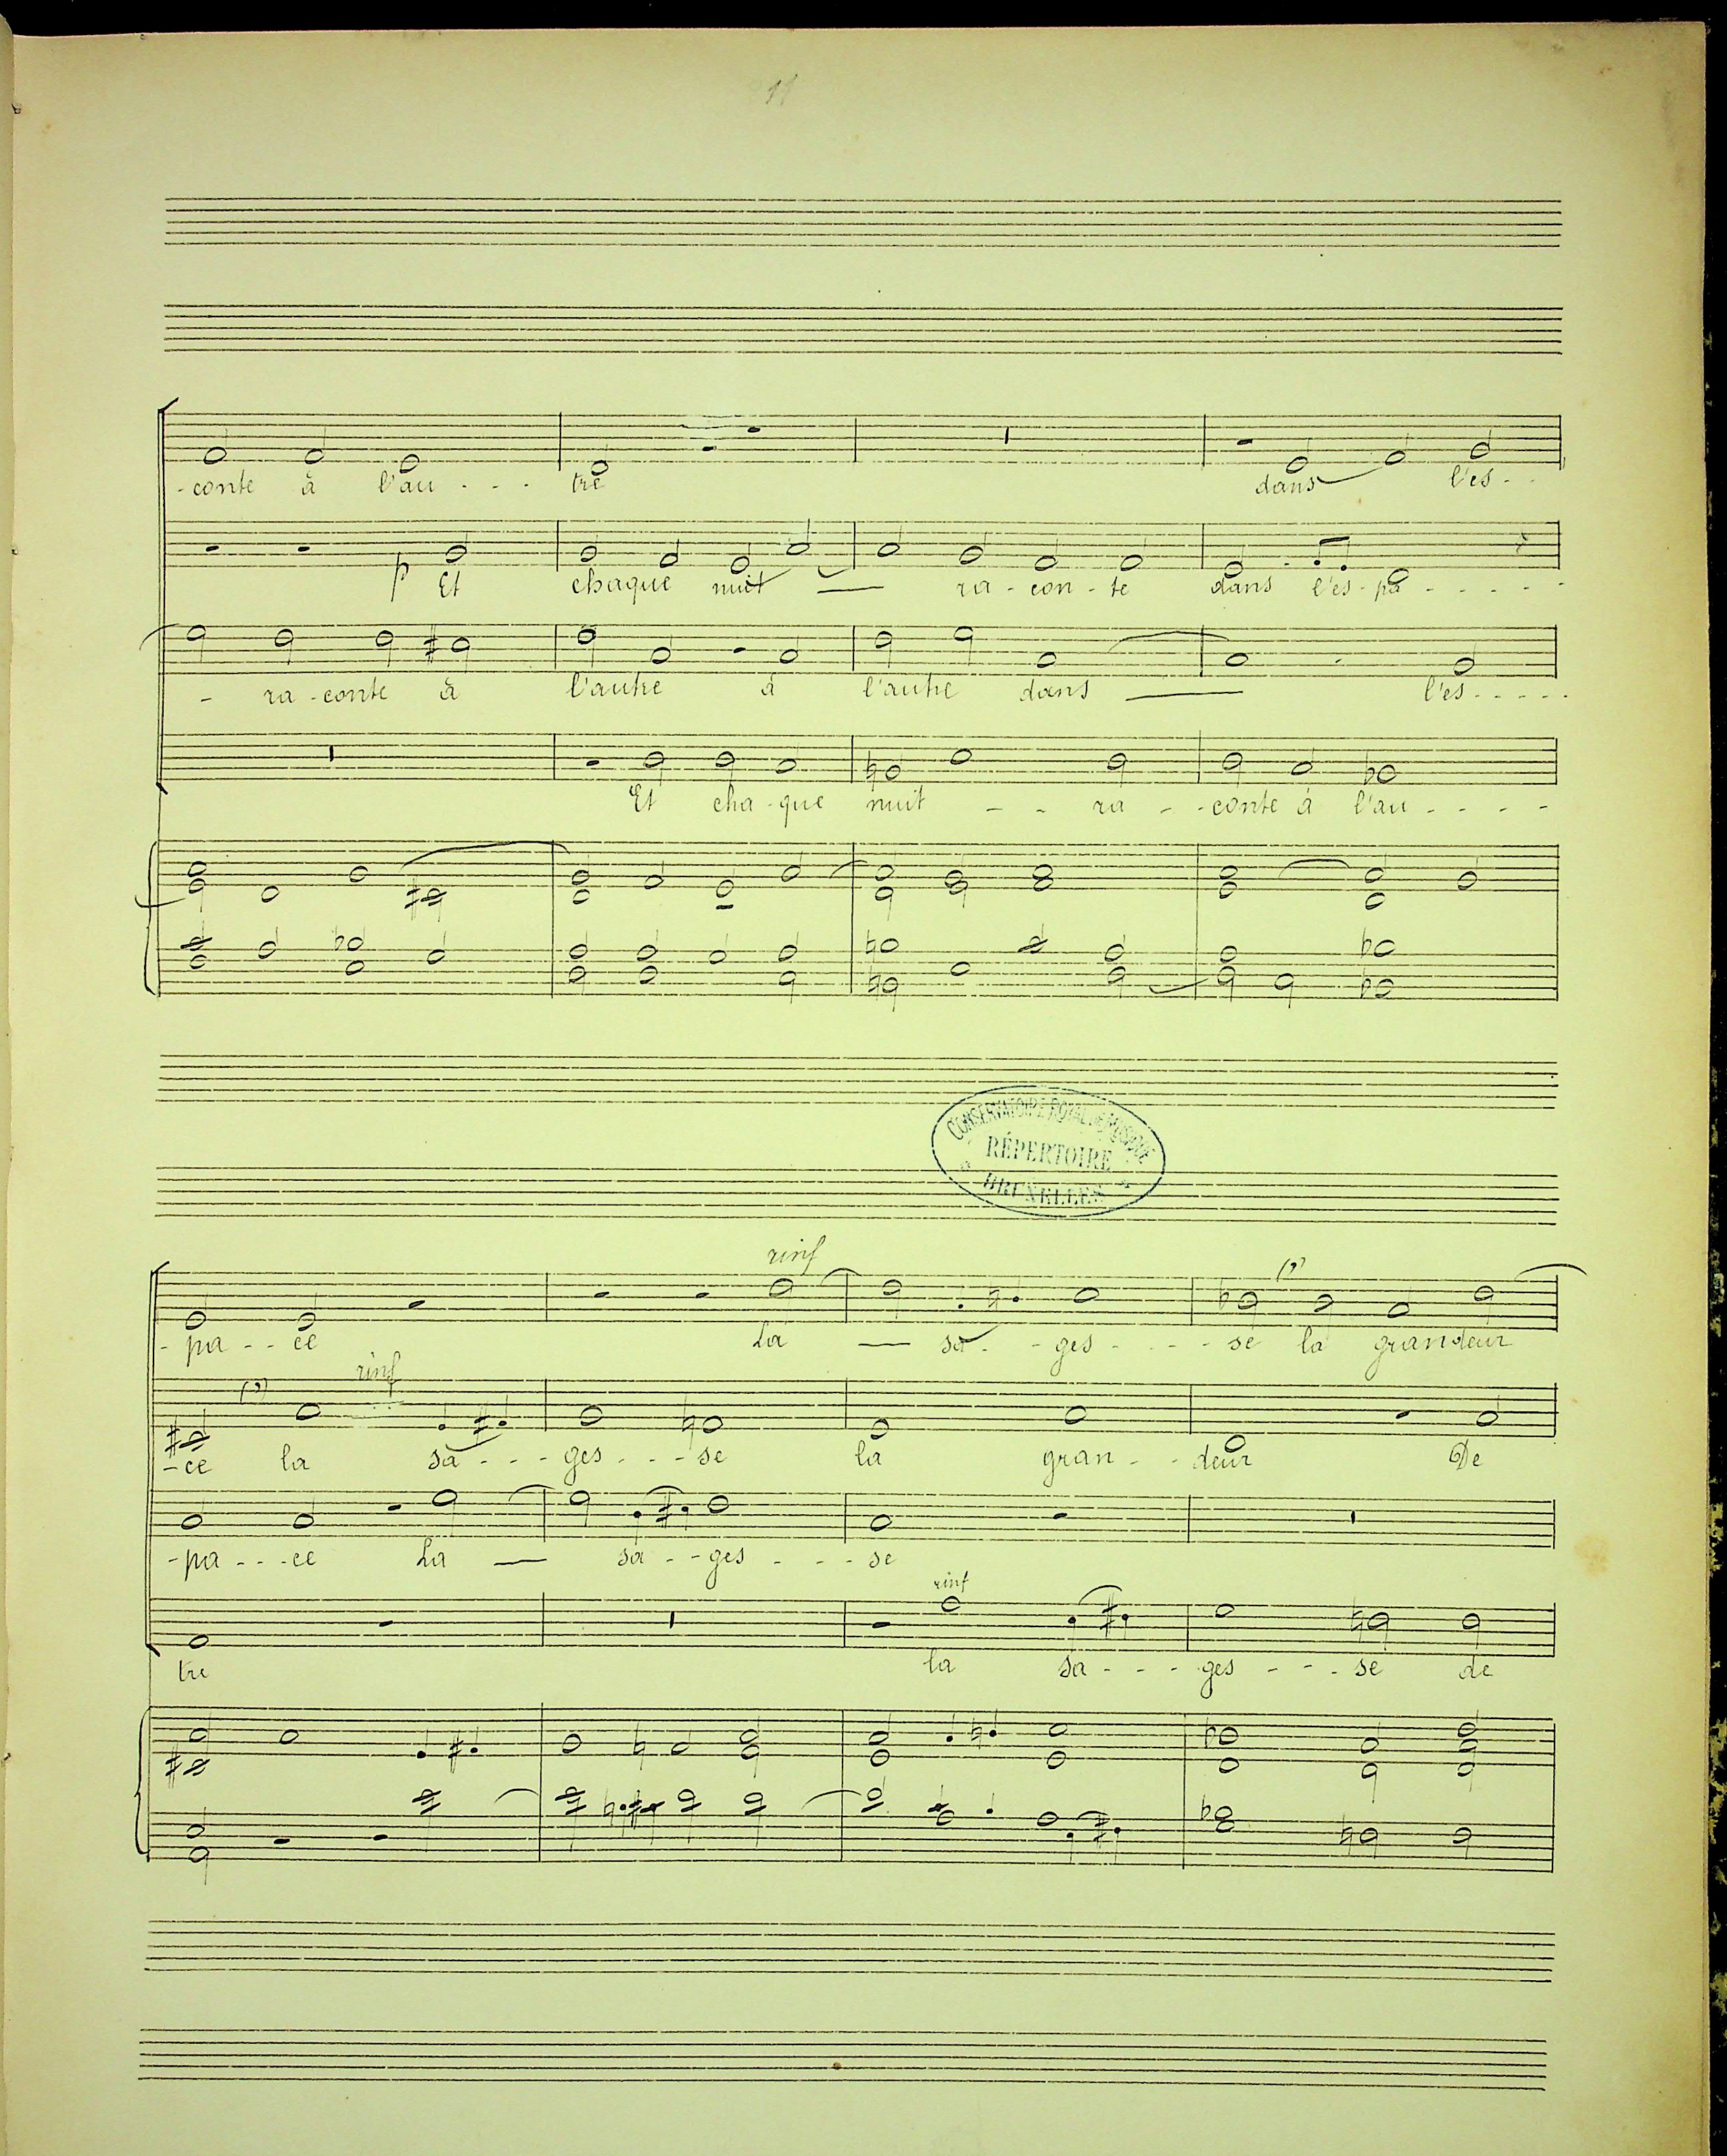 11
-conte à l'au - - - tre dans l'es - -
p Et chaque nuit — ra - con - te dans l'es - pa - - - - -
- ra - conte à l'autre à l'autre dans — l'es - - - - -
Et cha - que nuit - - ra - - conte à l'au - - - -
CONSERVATOIRE ROYAL DE MUSIQUE
RÉPERTOIRE
BRUXELLES
rinf
- pa - - ce La — sa - - ges - - - - se la grandeur
rinf
- ce la sa - - - ges - - - se la gran - - deur De
- pa - - - ce La — sa - - ges - - - se
rinf
tre la sa - - - ges - - - se de